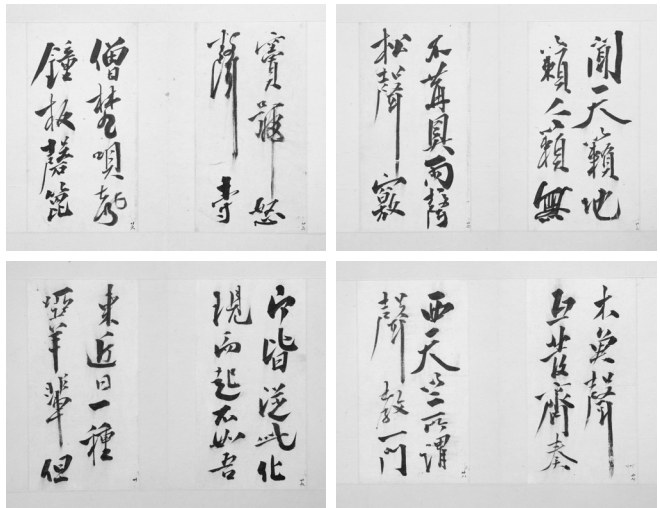 聞天籟地
籟人籟無
不冓具雨聲
松聲竅
竇號怒
聲壽
僧梵唄
鐘板磬
木魚聲
互發齊奏
西天竺所謂
聲教一門
皆從此化
現而起不如吾
東近日一種
啞羊輩但